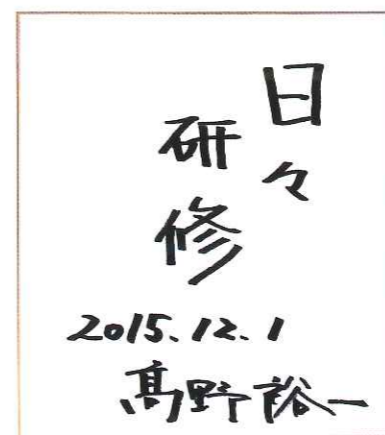 日々
研修
2015.12.1
髙野裕一